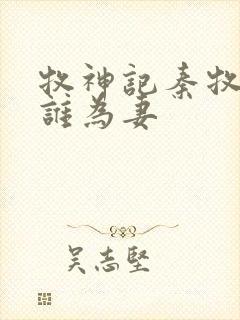 牧神記秦牧
誰為妻
吴志堅